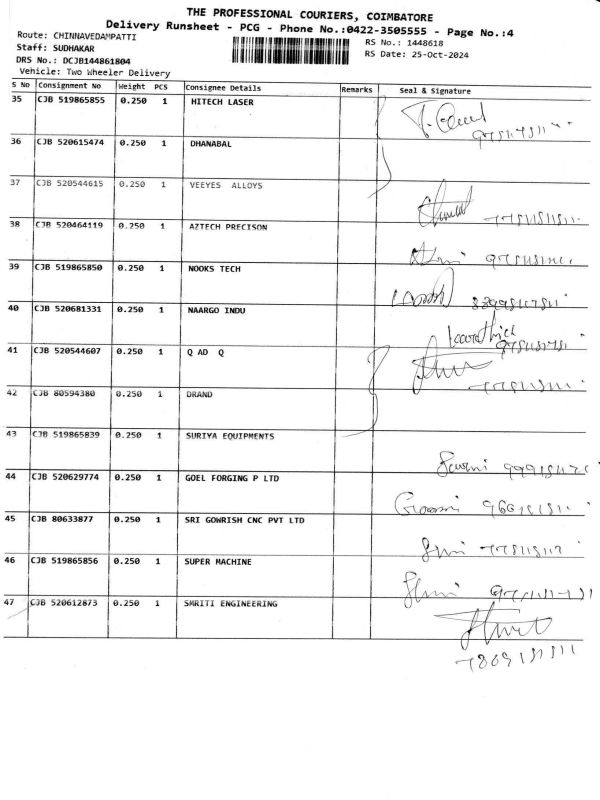 THE PROFESSIONAL COURIERS, COIMBATORE
Delivery Runsheet - PCG - Phone No.:0422-3505555 - Page No.:4
Route: CHINNAVEDAMPATTI
RS No.: 1448618
Staff: SUDHAKAR
RS Date: 25-Oct-2024
DRS No.: DCJB144861804
Vehicle: Two Wheeler Delivery
S No Consignment No Weight PCS Consignee Details Remarks Seal & Signature
35 CJB 519865855 0.250 1 HITECH LASER
36 CJB 520615474 0.250 1 DHANABAL
37 CJB 520544615 0.250 1 VEEYES ALLOYS
38 CJB 520464119 0.250 1 AZTECH PRECISON
39 CJB 519865850 0.250 1 NOOKS TECH
40 CJB 520681331 0.250 1 NAARGO INDU
41 CJB 520544607 0.250 1 Q AD Q
42 CJB 80594380 0.250 1 DRAND
43 CJB 519865839 0.250 1 SURIYA EQUIPMENTS
44 CJB 520629774 0.250 1 GOEL FORGING P LTD
45 CJB 80633877 0.250 1 SRI GOWRISH CNC PVT LTD
46 CJB 519865856 0.250 1 SUPER MACHINE
47 CJB 520612873 0.250 1 SMRITI ENGINEERING